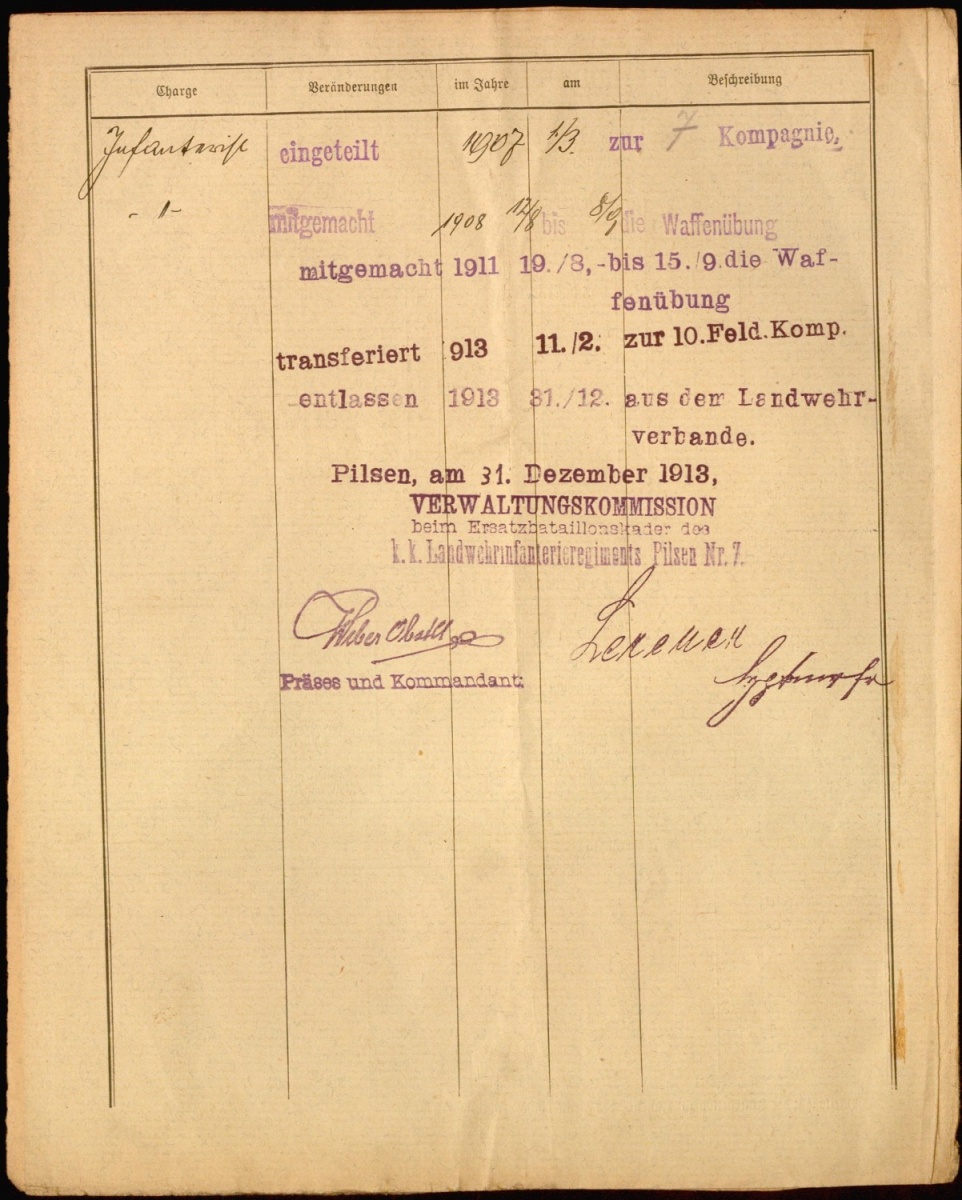 Charge Veränderungen im Jahre am Beschreibung
Infanterist eingeteilt 1907 1/3. zur 7 Kompagnie,
- " - mitgemacht 1908 12/8 bis 8/9 die Waffenübung
mitgemacht 1911 19./8,-bis 15./9.die Waf-
fenübung
transferiert 913 11./2. zur 10.Feld.Komp.
entlassen 1913 31./12. aus dem Landwehr-
verbande.
Pilsen, am 31. Dezember 1913,
VERWALTUNGSKOMMISSION
beim Ersatzbataillonskader des
k. k. Landwehrinfanterieregiments Pilsen Nr. 7.
Weber
Präses und Kommandant: